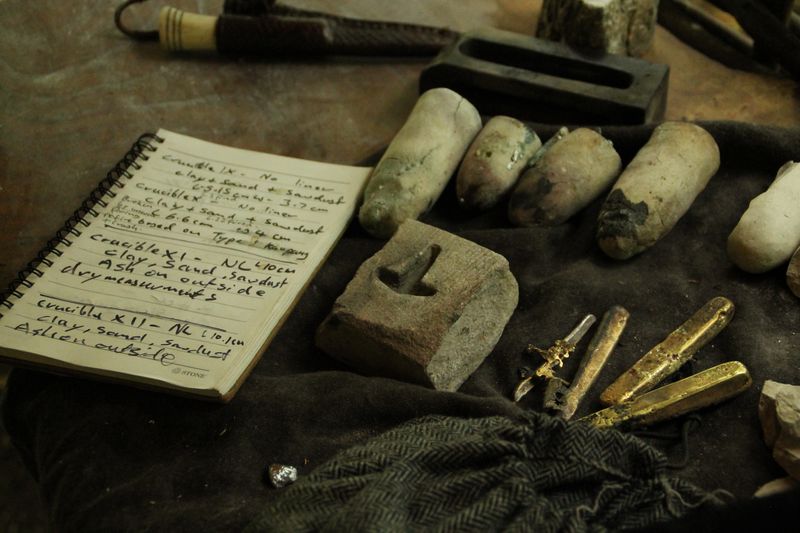 Crucible IX - No liner
clay + sand + sawdust
3.7 cm
Crucible X No liner
clay + sand + sawdust
6.6 cm 4 cm
based on Type
Crucible XI - NL L10cm
clay, sand, sawdust
Ash on outside
dry measurements
Crucible XII - NL L10.1cm
clay, sand, sawdust
Ash on outside
STONE